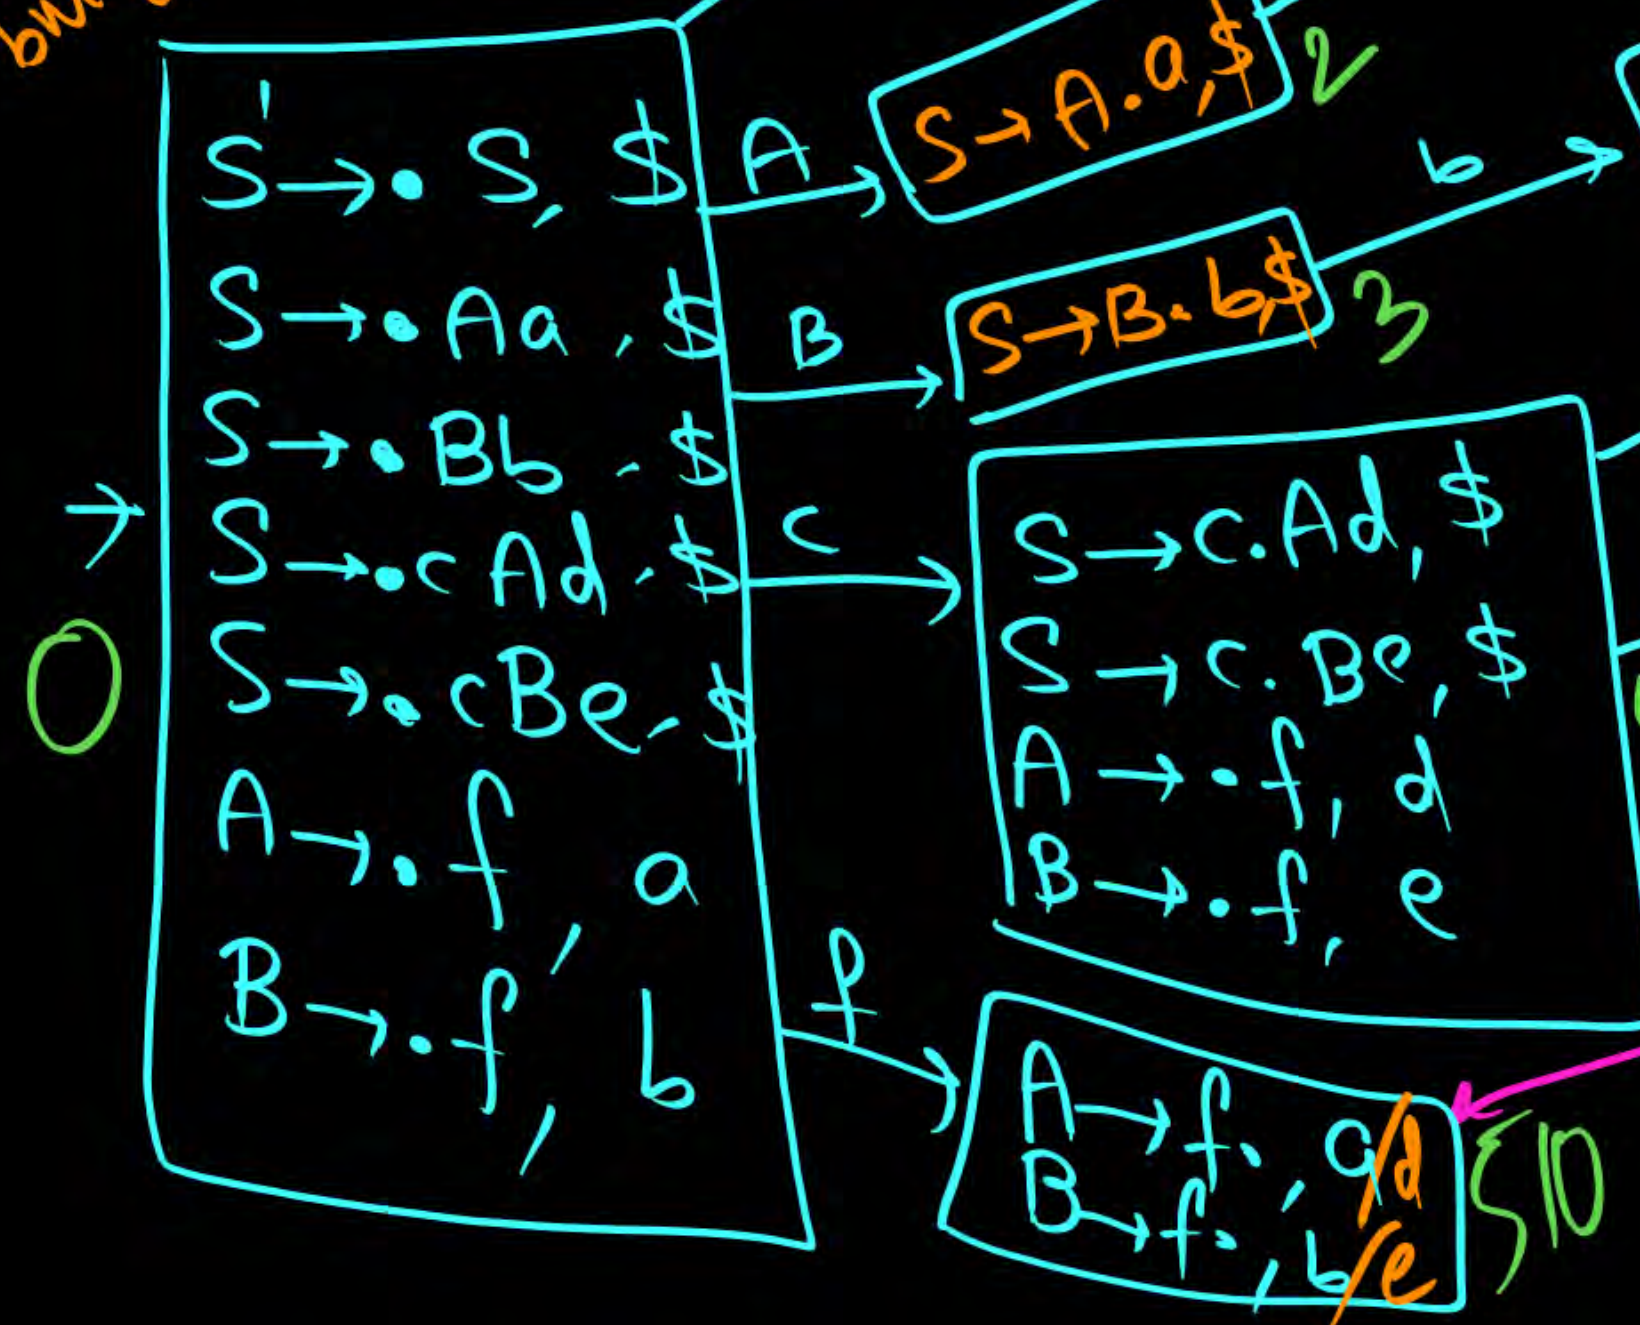 S' → . S, $
S → . Aa, $
S → . Bb, $
S → . cAd, $
S → . cBe, $
A → . f, a
B → . f, b
0
A
S → A . a, $
2
B
S → B . b, $
3
b
c
S → c . Ad, $
S → c . Be, $
A → . f, d
B → . f, e
f
A → f . , a/d
B → f . , b/e
510